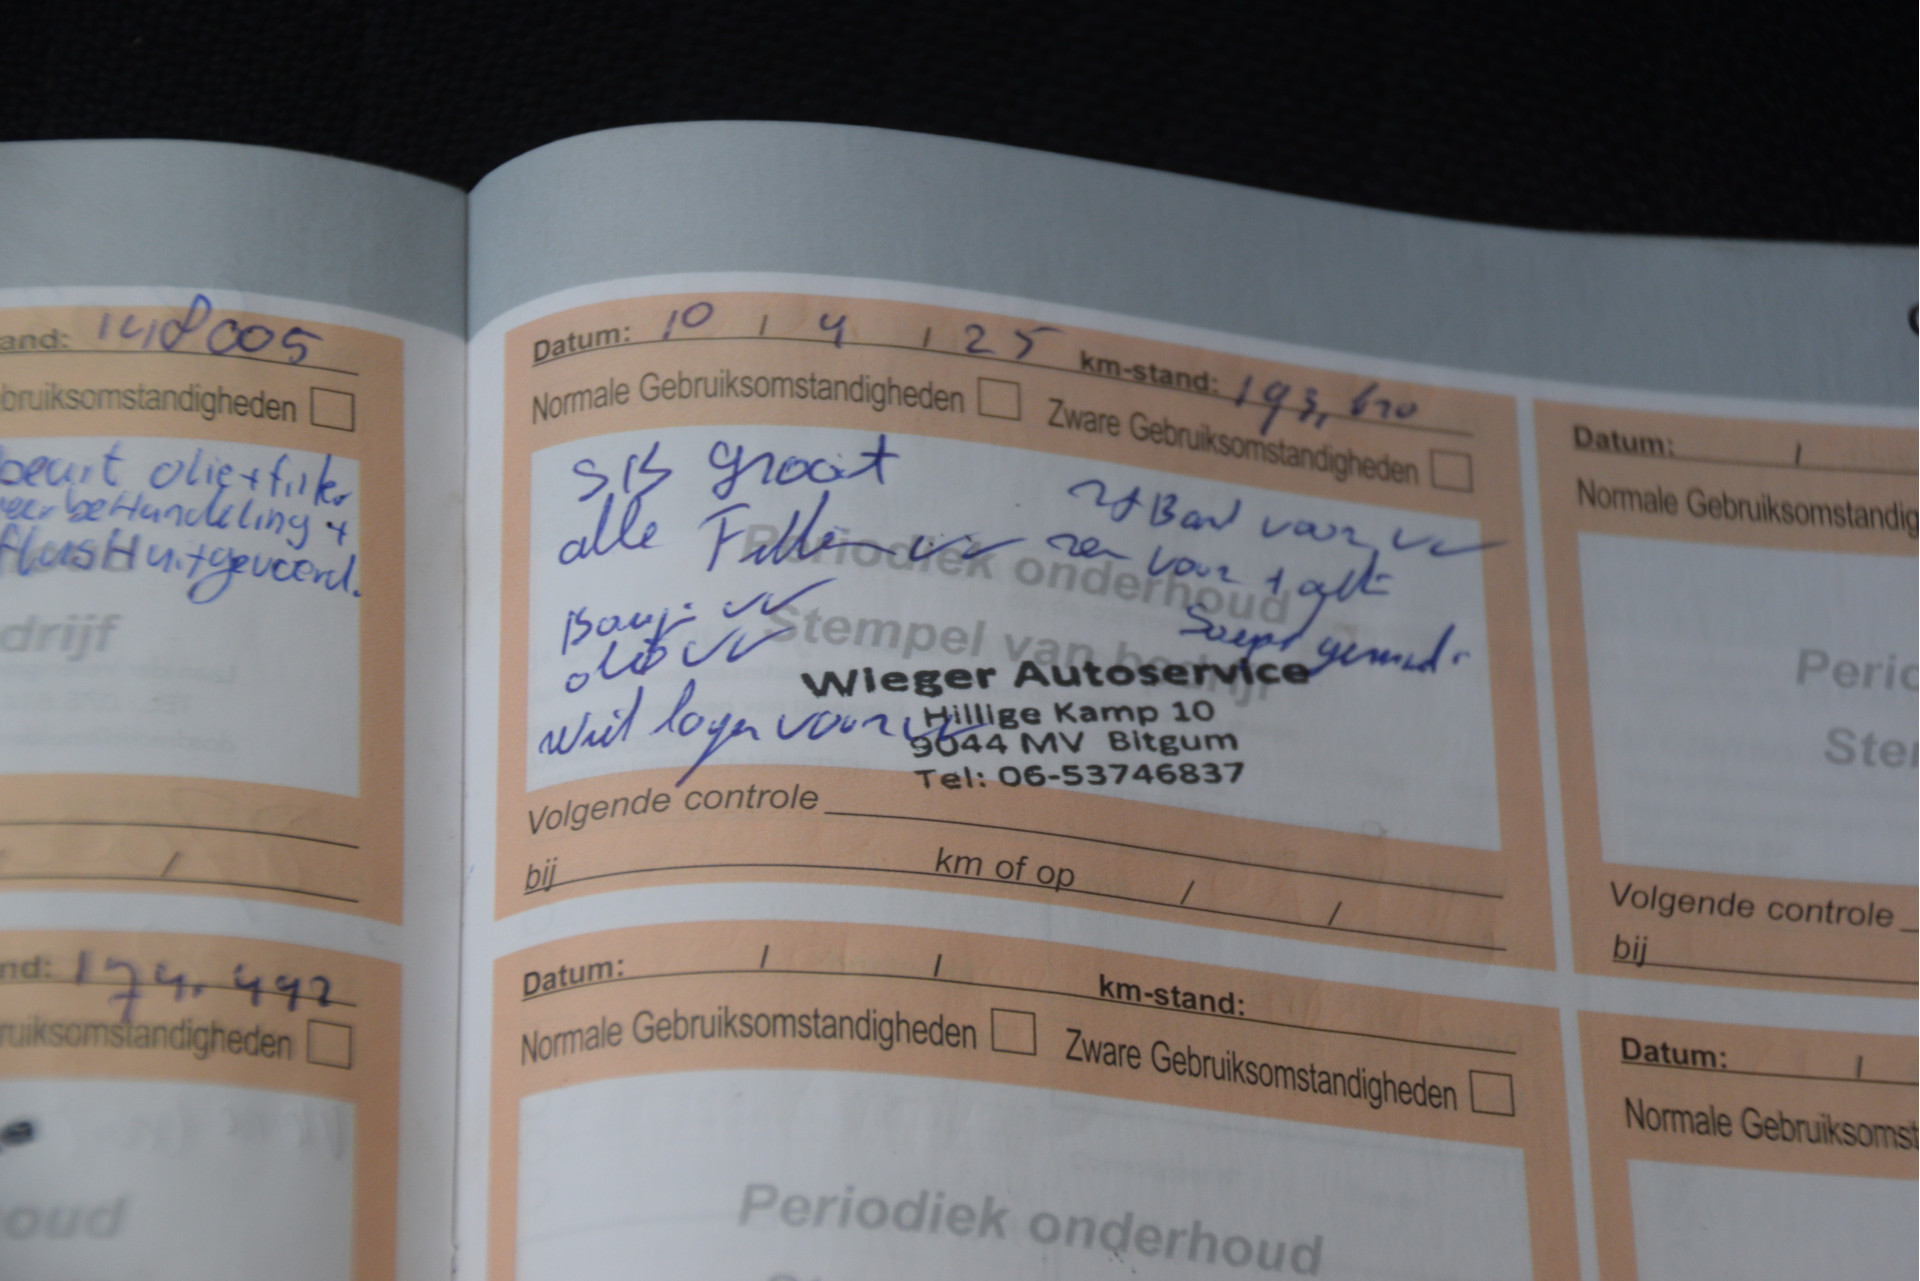 and: 148005
bruiksomstandigheden
beurt olie+filter
behandeling +
flush uitgevoerd.
drijf
nd: 174.442
ruiksomstandigheden
oud
Datum: 10 / 4 / 25 km-stand: 193,610
Normale Gebruiksomstandigheden Zware Gebruiksomstandigheden
groot
alle
Band voor vv
voor +
olie vv
Periodiek onderhoud
Stempel van bedrijf
Wieger Autoservice
Hillige Kamp 10
9044 MV Bitgum
Tel: 06-53746837
Wiel lager voor vv
Volgende controle
bij km of op / /
Datum: / / km-stand:
Normale Gebruiksomstandigheden Zware Gebruiksomstandigheden
Periodiek onderhoud
Datum: /
Normale Gebruiksomstandig
Perio
Ste
Volgende controle
bij
Datum: /
Normale Gebruiksomst